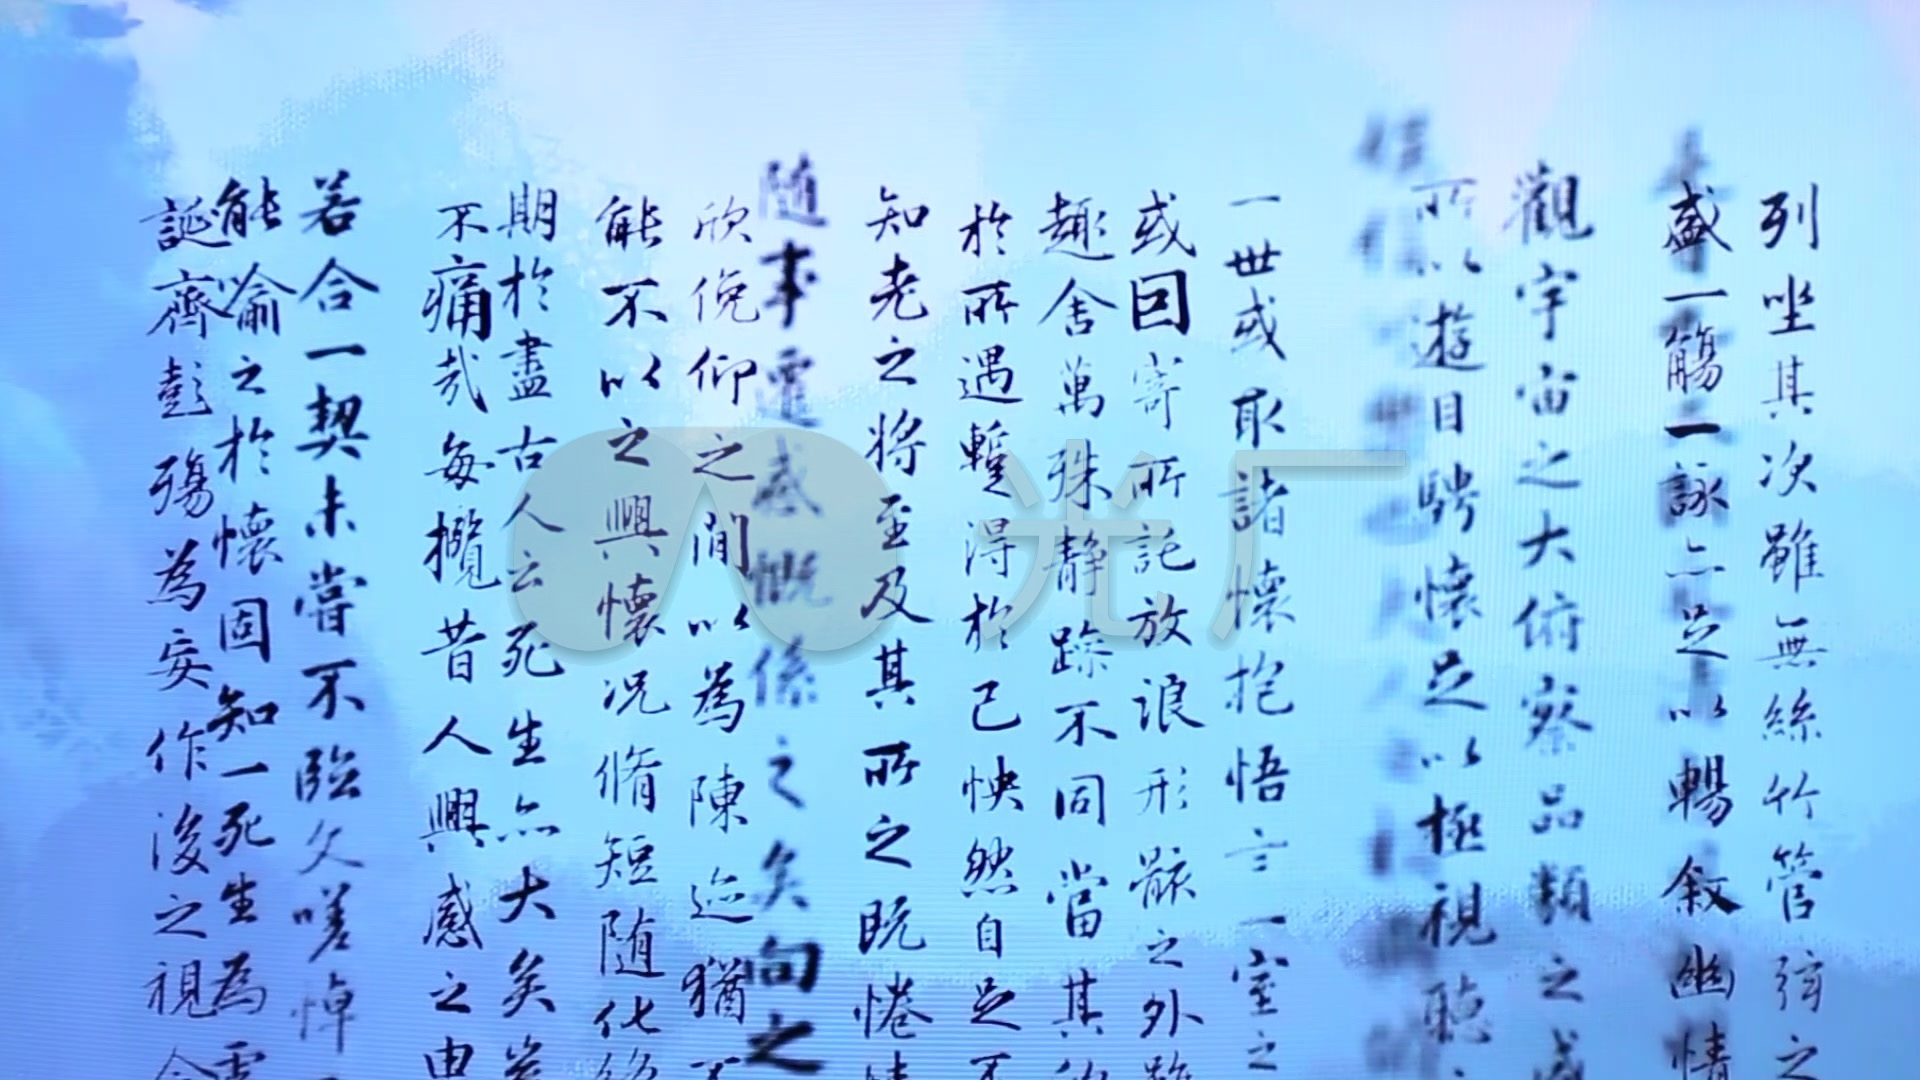 列坐其次雖無絲竹管弦之
盛一觴一詠亦足以暢敘幽情
觀宇宙之大俯察品類之盛
所以遊目騁懷足以極視聽
一世或取諸懷抱悟言一室之
或因寄所託放浪形骸之外雖
趣舍萬殊静躁不同當其欣
於所遇暫得於己怏然自足不
知老之將至及其所之既惓情
隨事遷感慨係之矣向之
欣俛仰之閒以為陳迹猶不
能不以之興懷況脩短隨化終
期於盡古人云死生亦大矣豈
不痛哉每攬昔人興感之由
若合一契未嘗不臨文嗟悼不
能喻之於懷固知一死生為虛
誕齊彭殤為妄作後之視今
光厂